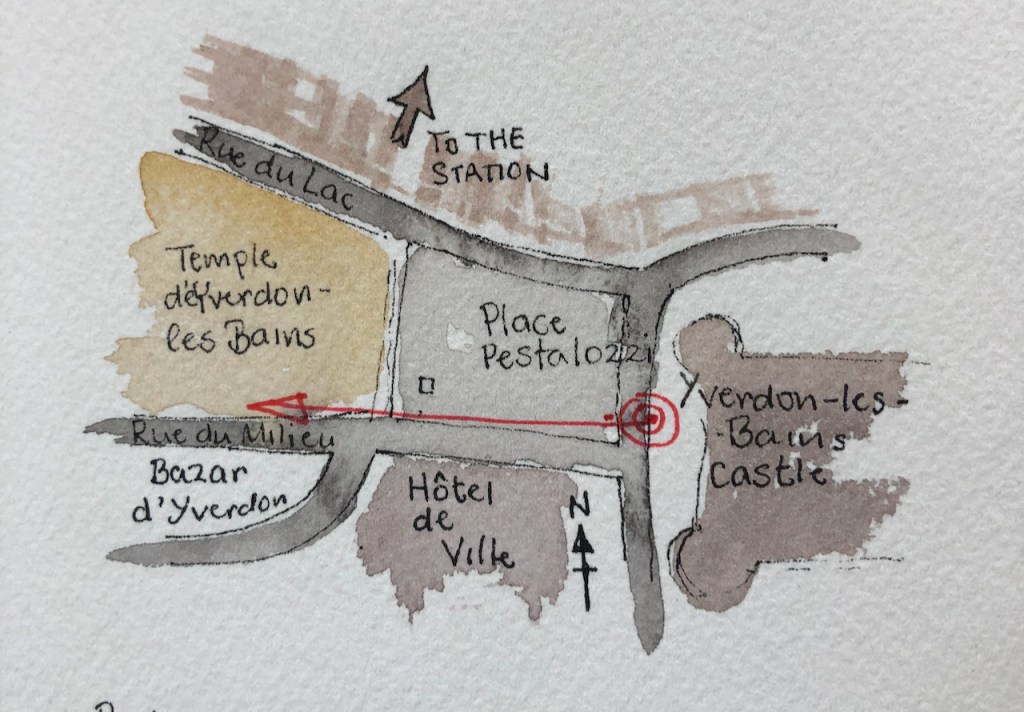 To THE
STATION
Rue du Lac
Temple
d'Yverdon-
les Bains
Place
Pestalozzi
Yverdon-les-
Bains
Castle
Rue du Milieu
Bazar
d'Yverdon
Hôtel
de
Ville
N